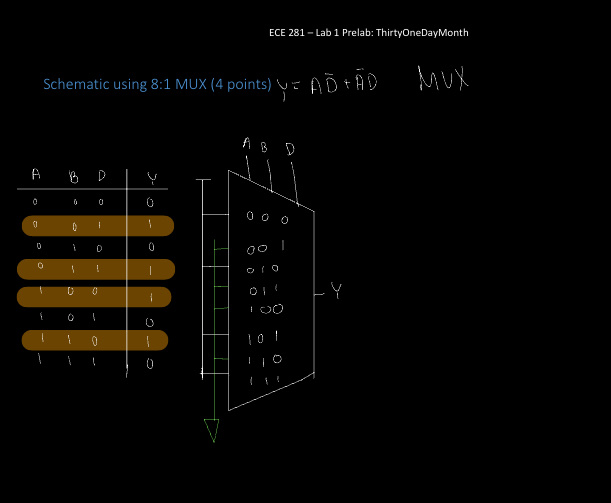 ECE 281 – Lab 1 Prelab: ThirtyOneDayMonth
Schematic using 8:1 MUX (4 points) Y = AD̅ + A̅D MUX
A B D
A B D Y
0 0 0 0
0 0 1 1
0 1 0 0
0 1 1 1
1 0 0 1
1 0 1 0
1 1 0 1
1 1 1 0
000
001
010
011
100
101
110
111
Y